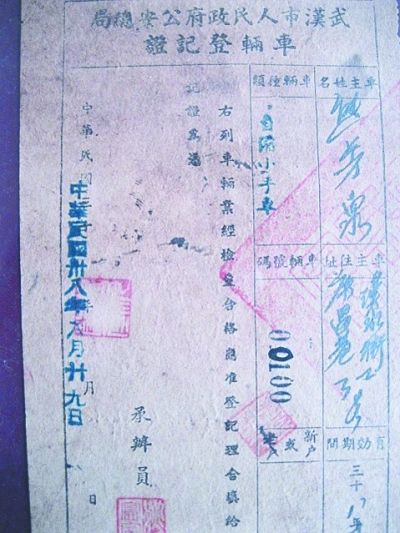 武漢市人民政府公安總局
車輛登記證
車主姓名
芳泉
車主住址
有効期間
三十八年
車輛種類
小手車
車輛號碼
00100
新戶或
右列車輛業經檢查合格應准登記理合填給
記證為憑
承辦員
中華民國 年 月 日
中華民國卅八年九月廿九日